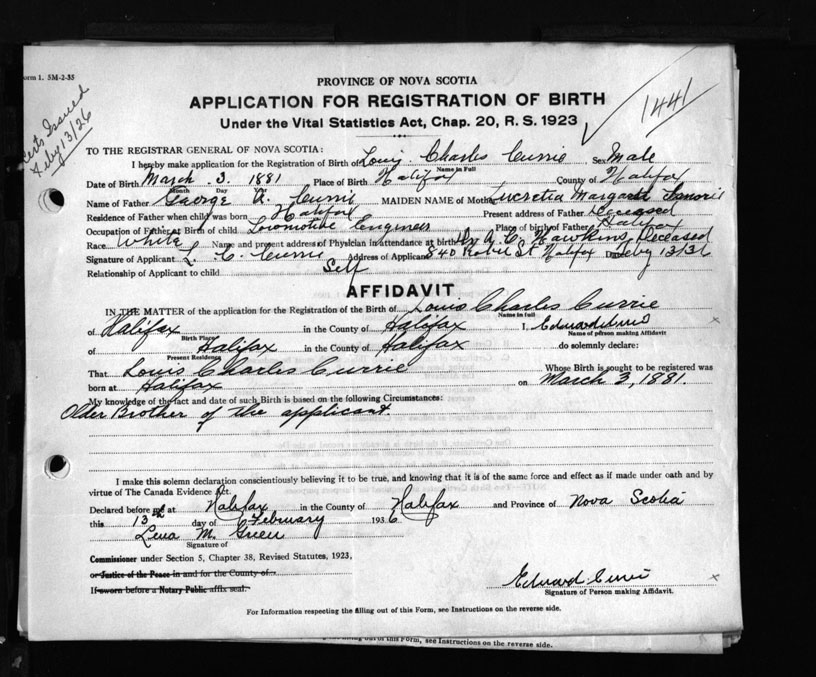 Form 1. 5M-2-35
Certs Issued
Feby 13/36
1441
PROVINCE OF NOVA SCOTIA
APPLICATION FOR REGISTRATION OF BIRTH
Under the Vital Statistics Act, Chap. 20, R. S. 1923
TO THE REGISTRAR GENERAL OF NOVA SCOTIA:
I hereby make application for the Registration of Birth of Louis Charles Currie Sex Male
Name in Full
Date of Birth March 3. 1881 Place of Birth Halifax County of Halifax
Month Day
Name of Father George A. Currie MAIDEN NAME of Mother Lucretia Margaret
Residence of Father when child was born Halifax Present address of Father Deceased
Occupation of Father at Birth of child Locomotive Engineer Place of birth of Father Halifax
Race White Name and present address of Physician in attendance at birth Dr A. C. Hawkins, Deceased
Signature of Applicant L. C. Currie Address of Applicant 840 Robie St Halifax Date Feby 13/36
Relationship of Applicant to child Self
AFFIDAVIT
IN THE MATTER of the application for the Registration of the Birth of Louis Charles Currie
Name in Full
of Halifax in the County of Halifax I, Edward Currie
Birth Place Name of person making Affidavit
of Halifax in the County of Halifax do solemnly declare:
Present Residence
That Louis Charles Currie Whose Birth is sought to be registered was
born at Halifax on March 3, 1881.
My knowledge of the fact and date of such Birth is based on the following Circumstances:
Older Brother of the applicant.
I make this solemn declaration conscientiously believing it to be true, and knowing that it is of the same force and effect as if made under oath and by
virtue of The Canada Evidence Act.
Declared before me at Halifax in the County of Halifax and Province of Nova Scotia
this 13th day of February 1936
Lena M. Green
Signature of
Commissioner under Section 5, Chapter 38, Revised Statutes, 1923,
or Justice of the Peace in and for the County of
If sworn before a Notary Public affix seal.
Edward Currie
Signature of Person making Affidavit.
For Information respecting the filling out of this Form, see Instructions on the reverse side.
filling out of this Form, see Instructions on the reverse side.